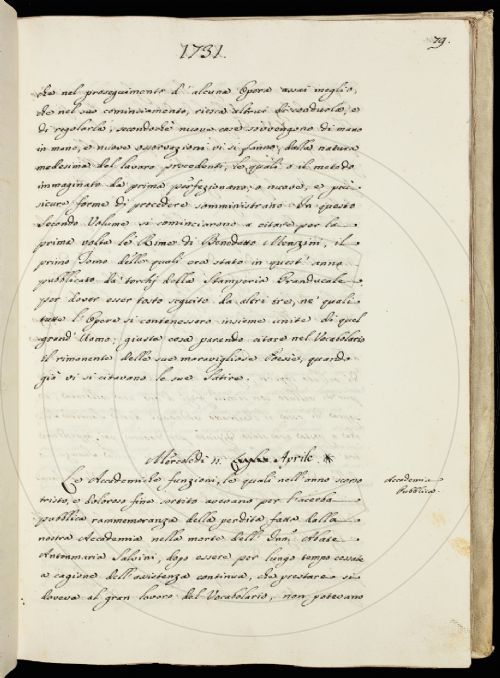 79.
1731.
che nel proseguimento d'alcuna Opera assai meglio,
che nel suo cominciamento, riesca altrui di condurla, e
di regolarla, secondochè nuove cose sovvengono di mano
in mano, e nuove osservazioni vi si fanno, dalla natura
medesima del lavoro procedenti, le quali o il metodo
immaginato da prima perfezionano, o nuove, e più
sicure forme di procedere somministrano. In questo
Secondo Volume si cominciarono a citare per la
prima volta le Rime di Benedetto Menzini, il
primo Tomo delle quali era stato in quest'anno
pubblicato da' torchj della Stamperia Granducale
per dover esser tosto seguito da altri tre, ne' quali
tutte l'Opere si contenessero insieme unite di quel
grand'Uomo; giusta cosa parendo citare nel Vocabolario
il rimanente delle sue maravigliose Poesie, quando
già vi si citavano le sue Satire.
Mercoledì 11. Aprile.
Le Accademiche funzioni, le quali nell'anno scorso
tristo, e doloroso fine sortito avevano per l'acerba
pubblica rammemoranza della perdita fatta dalla
nostra Accademia nella morte dell' Abate
Antonmaria Salvini, dopo essere per lungo tempo cessate
a cagione dell'assistenza continua, che prestare si
doveva al gran lavoro del Vocabolario, non potevano
Accademia
Pubblica.